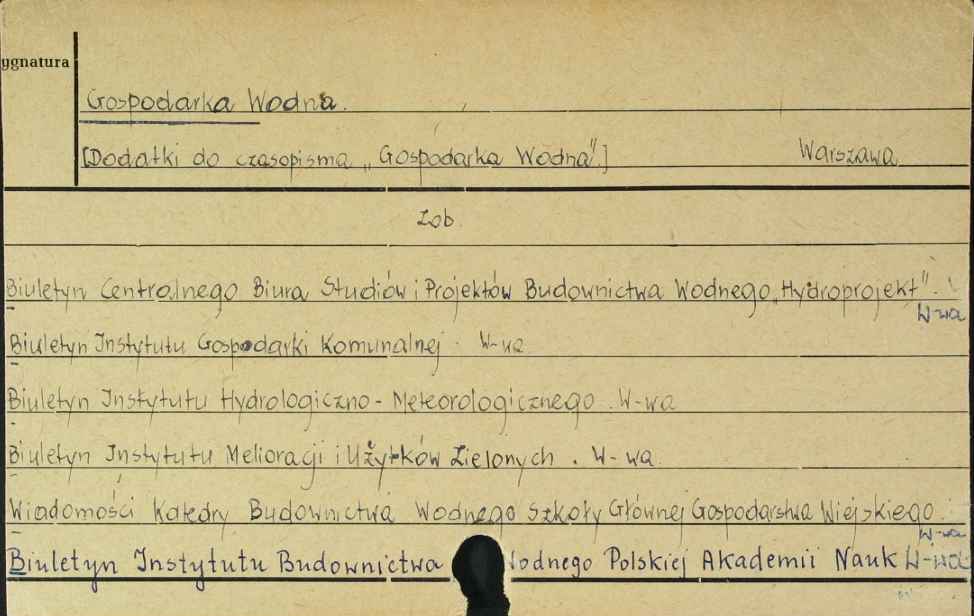 ygnatura
Gospodarka Wodna.
[Dodatki do czasopisma „Gospodarka Wodna".] Warszawa
Zob.
Biuletyn Centralnego Biura Studiów i Projektów Budownictwa Wodnego „Hydroprojekt".
W-wa
Biuletyn Instytutu Gospodarki Komunalnej. W-wa
Biuletyn Instytutu Hydrologiczno-Meteorologicznego. W-wa
Biuletyn Instytutu Melioracji i Użytków Zielonych. W-wa.
Wiadomości Katedry Budownictwa Wodnego Szkoły Głównej Gospodarstwa Wiejskiego.
W-wa
Biuletyn Instytutu Budownictwa odnego Polskiej Akademii Nauk W-wa